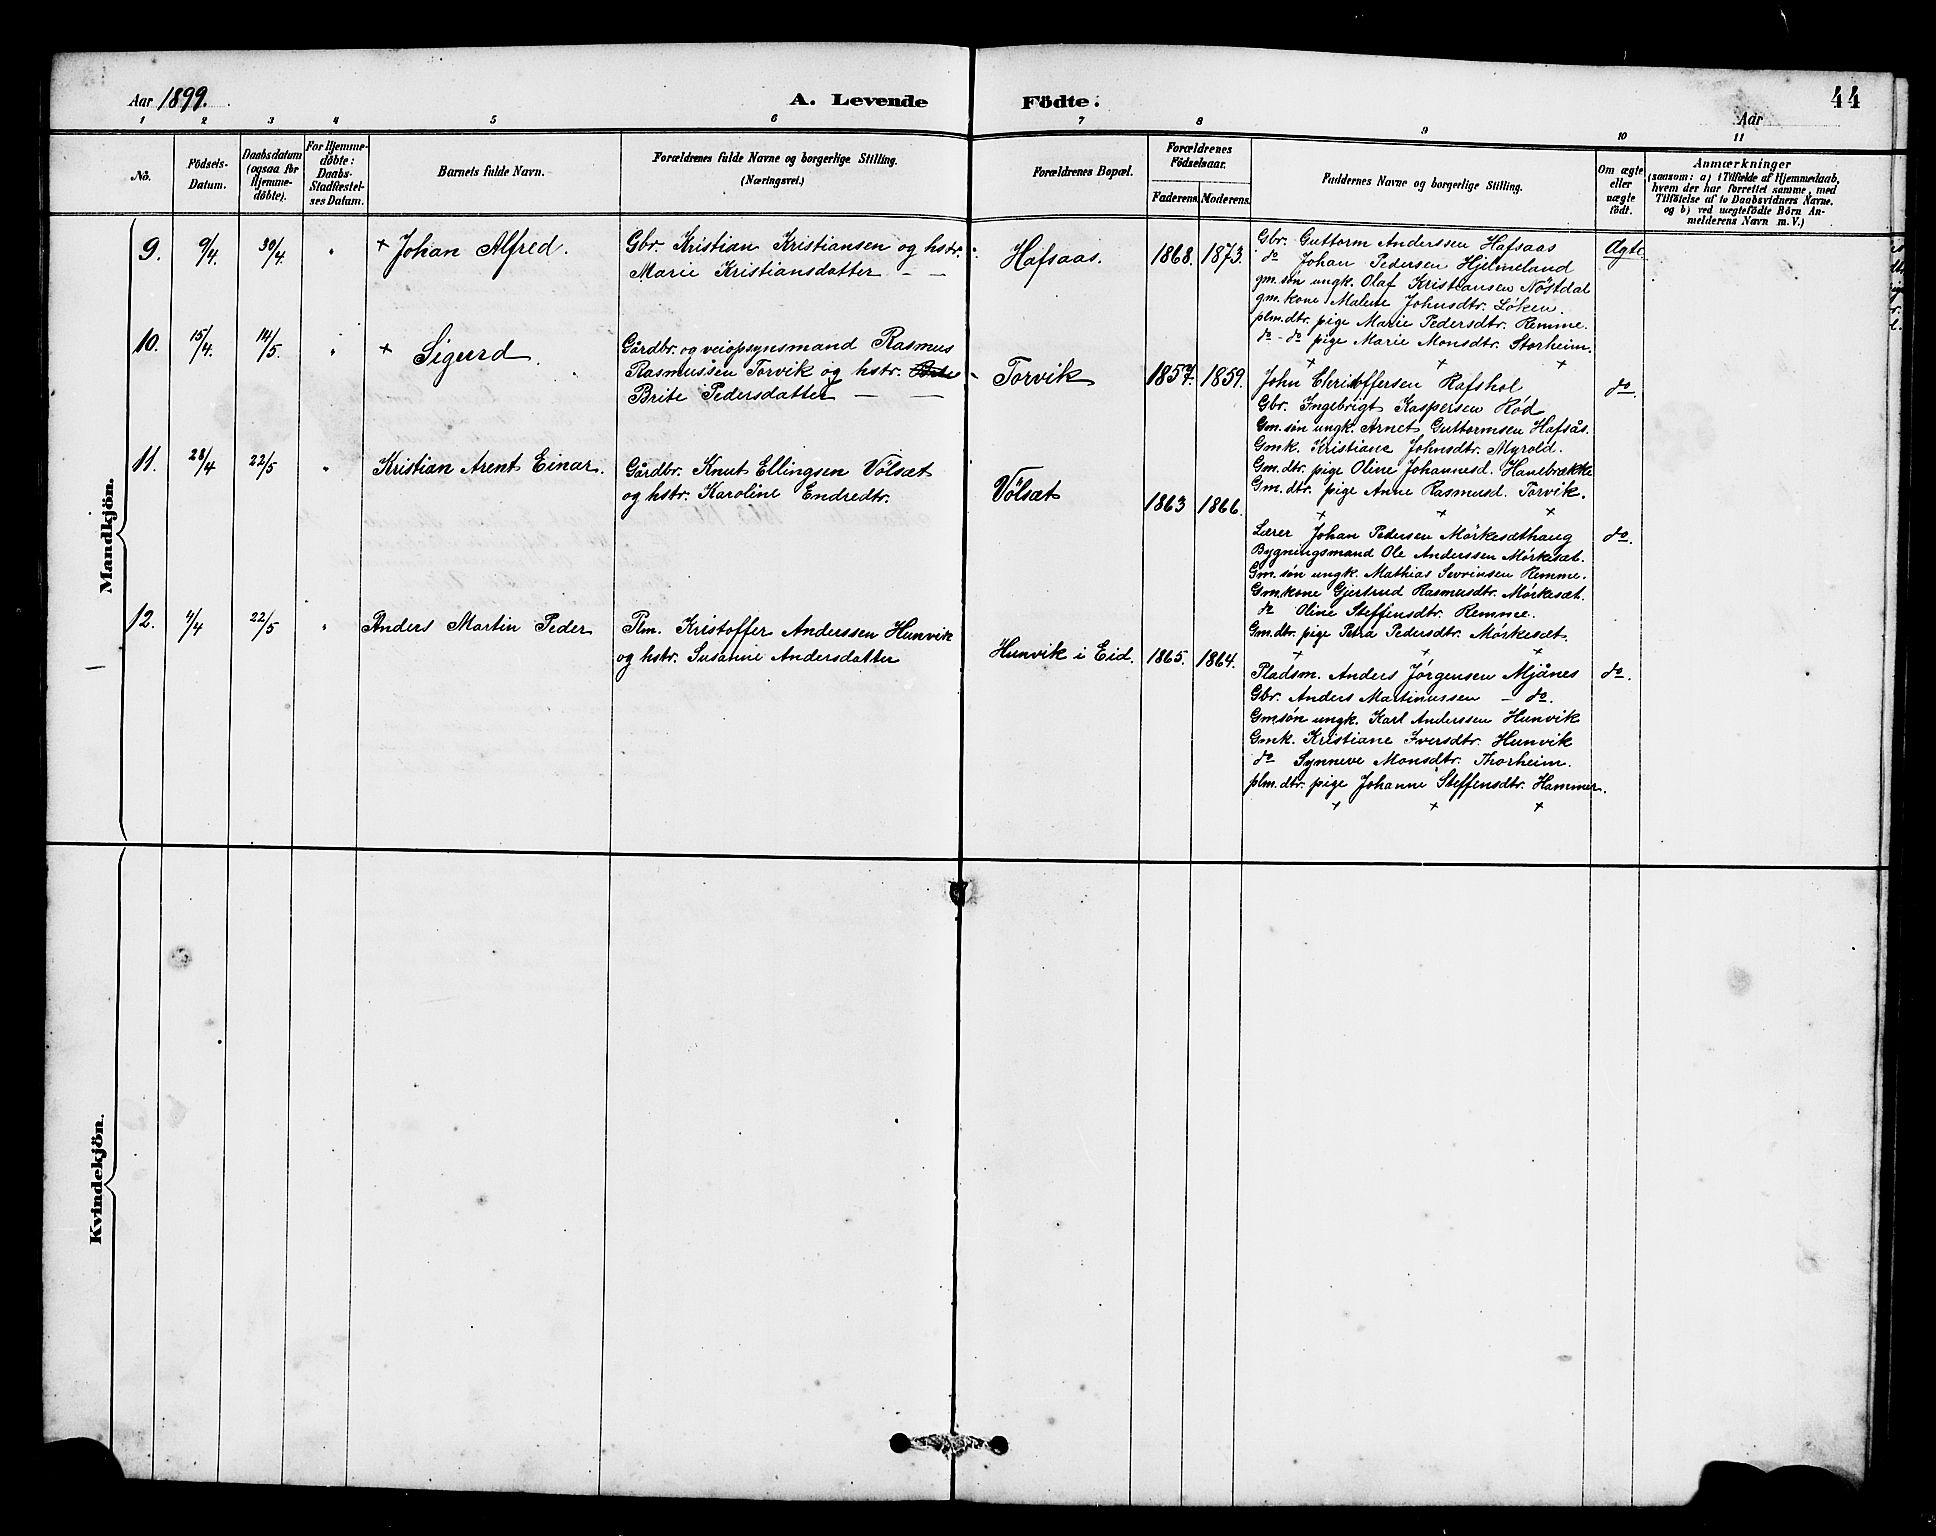 Aar 1899.
A. Levende Födte.
44
Aar
1 2 3 4 5 6 7 8 9 10 11
No.
Födsels-
Datum.
Daabsdatum
(ogsaa for
Hjemme-
døbte).
For Hjemme-
døbte:
Daabs-
Stadfæstel-
ses Datum.
Barnets fulde Navn.
Forældrenes fulde Navne og borgerlige Stilling.
(Næringsvei.)
Forældrenes Bopæl.
Forældrenes
Födselsaar.
Faderens. Moderens.
Faddernes Navne og borgerlige Stilling.
Om ægte
eller
uægte
födt.
Anmærkninger
(saasom: a) i Tilfælde af Hjemmedaab,
hvem der har forrettet samme, med
Tilföielse af to Daabsvidners Navne.
og b) ved uægtefödte Börn An-
melderens Navn m. V.)
Mandkjön.
9. 9/4. 30/4. " + Johan Alfred.
Gbr. Kristian Kristiansen og hstr.
Marie Kristiansdatter — —
Hafsaas. 1868. 1873.
Gbr. Guttorm Anderssen Hafsaas
do Johan Pedersen Hjelmeland
gm. søn ungk. Olaf Kristiansen Nöstdal
gm. kone Malene Johnsdtr. Löken.
plm. dtr. pige Marie Pedersdtr. Remme.
do - do pige Marie Monsdtr. Storheim.
+ + +
Ægte
10. 15/4. 14/5. " + Sigurd.
Gårdbr. og veiopsynsmand Rasmus
Rasmussen Torvik og hstr. Brite
Brite Pedersdatter — —
Torvik 1857. 1859.
John Christoffersen Rafshol
Gbr. Ingebrigt Kaspersen Röd
Gm. søn ungk. Arnet Guttormsen Hafsås.
Gmk. Kristiane Johnsdtr. Myrold.
Gm. dtr. pige Oline Johannesd. Hanebrække
Gm. dtr. pige Anne Rasmusd. Torvik.
+ + +
do.
11. 28/4 22/5 " Kristian Arent Einar.
Gårdbr. Knut Ellingsen Völsæt
og hstr. Karoline Endredtr.
Völsæt 1863 1866.
Lærer Johan Pedersen Mörkesæthaug
Bygningsmand Ole Anderssen Mörkesæt.
Gm. søn ungk. Mathias Sevrinsen Remme.
Gm. kone Gjertrud Rasmusdtr. Mörkesæt.
do Oline Steffensdtr. Remme.
Gm. dtr. pige Petra Pedersdtr. Mörkesæt.
+ + +
do.
12. 4/4 22/5 " Anders Martin Peder
Plm. Kristoffer Anderssen Hunvik
og hstr. Susanne Andersdatter
Hunvik i Eid. 1865. 1864.
Pladsm. Anders Jörgensen Mjånes
Gbr. Anders Martinussen — do.
Gmsøn ungk. Karl Anderssen Hunvik
Gmk. Kristiane Iversdtr. Hunvik
do Synneve Monsdtr. Thorheim.
plm. dtr. pige Johanne Steffensdtr. Hammer.
+ + +
do.
Kvindekjön.